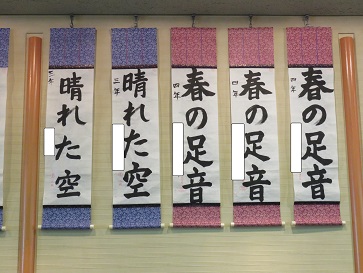 春の足音
四年
春の足音
四年
春の足音
四年
晴れた空
三年
晴れた空